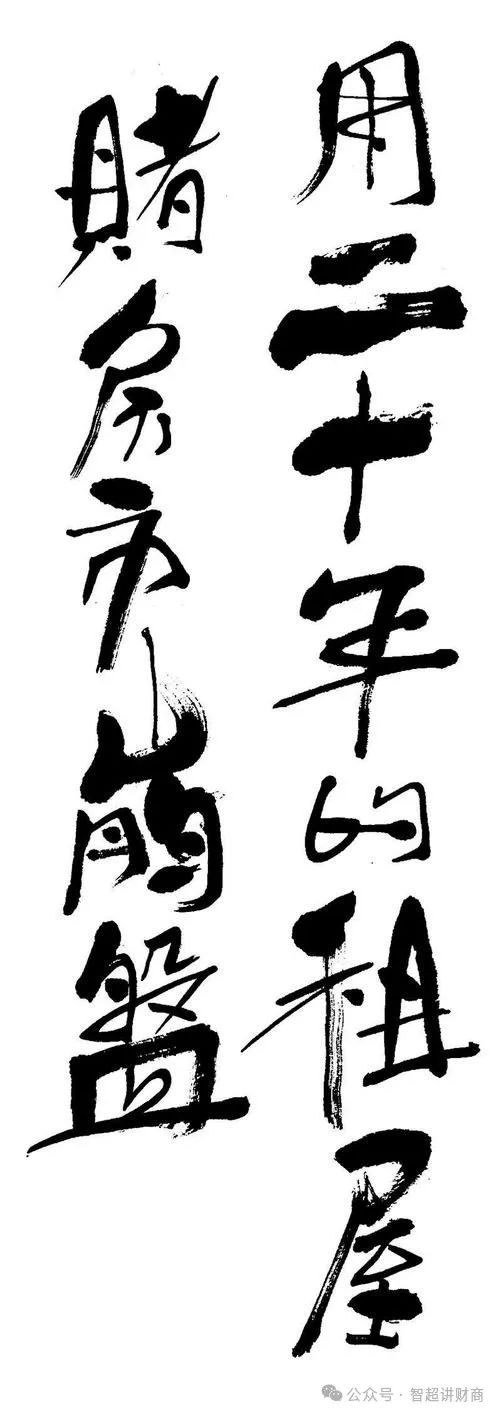 用二十年的租屋
賭房市崩盤
公众号·智超讲财商